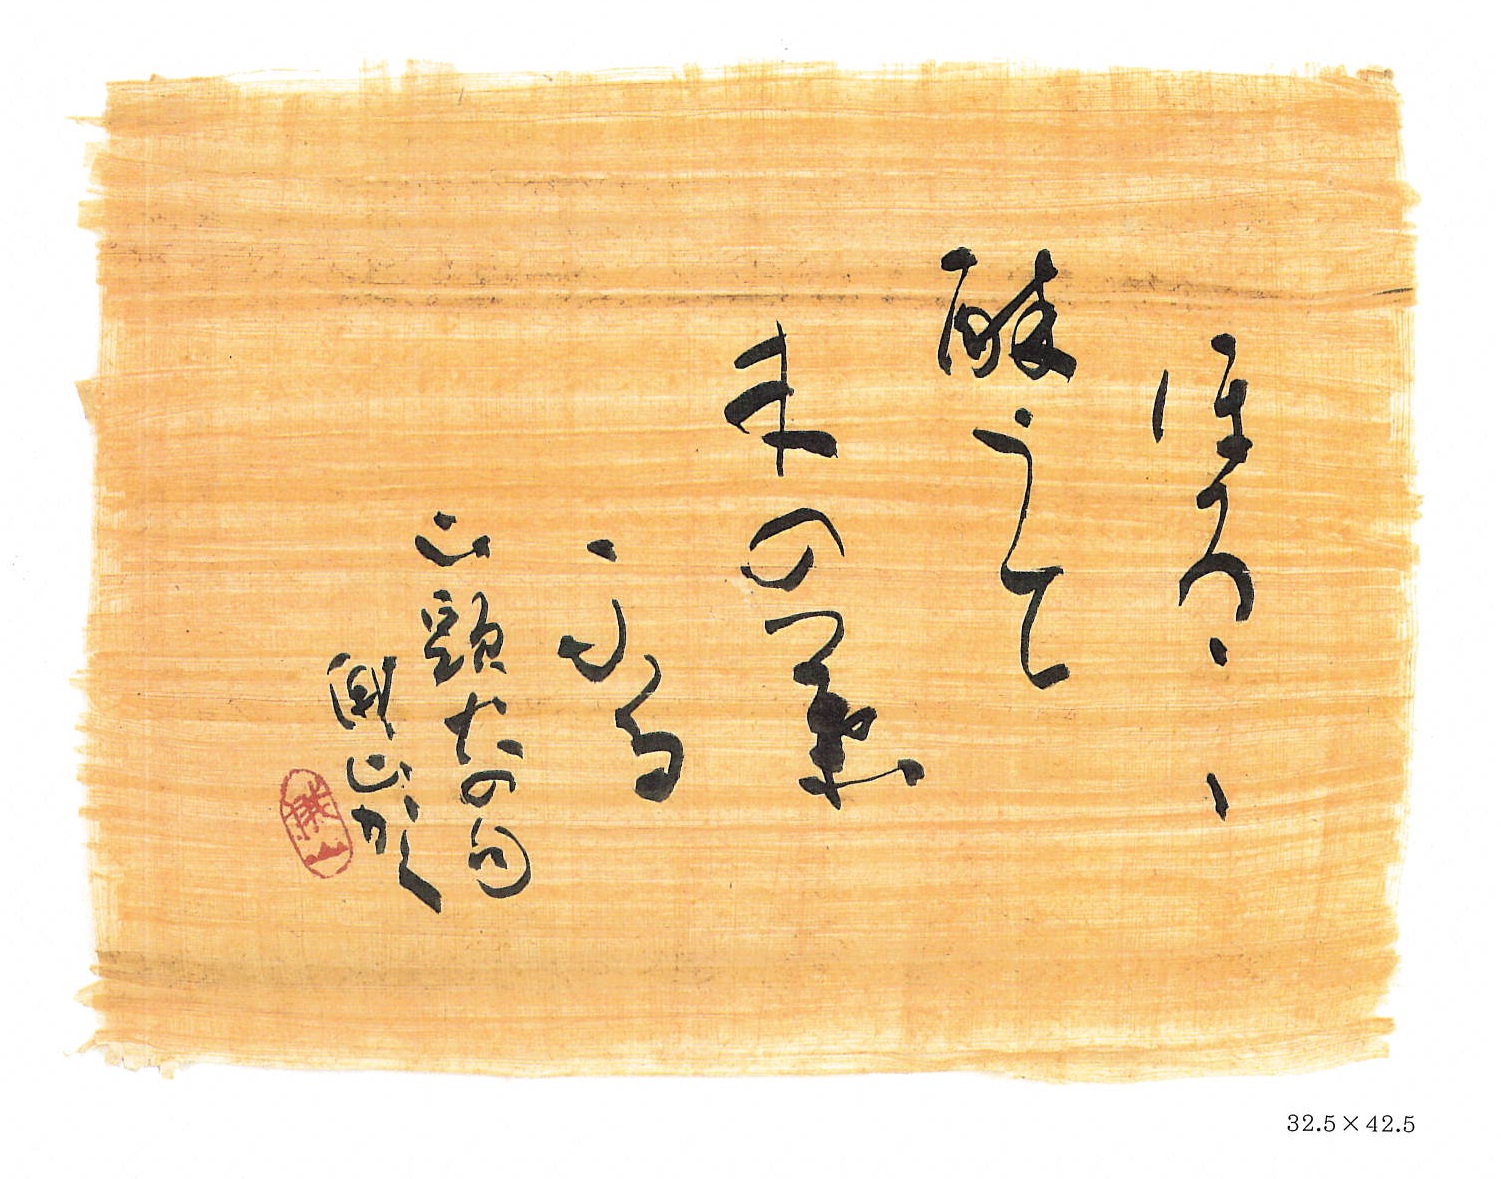 ほろヽヽ
酔うて
木の葉
ふる
山頭火の句
山かく
32.5×42.5